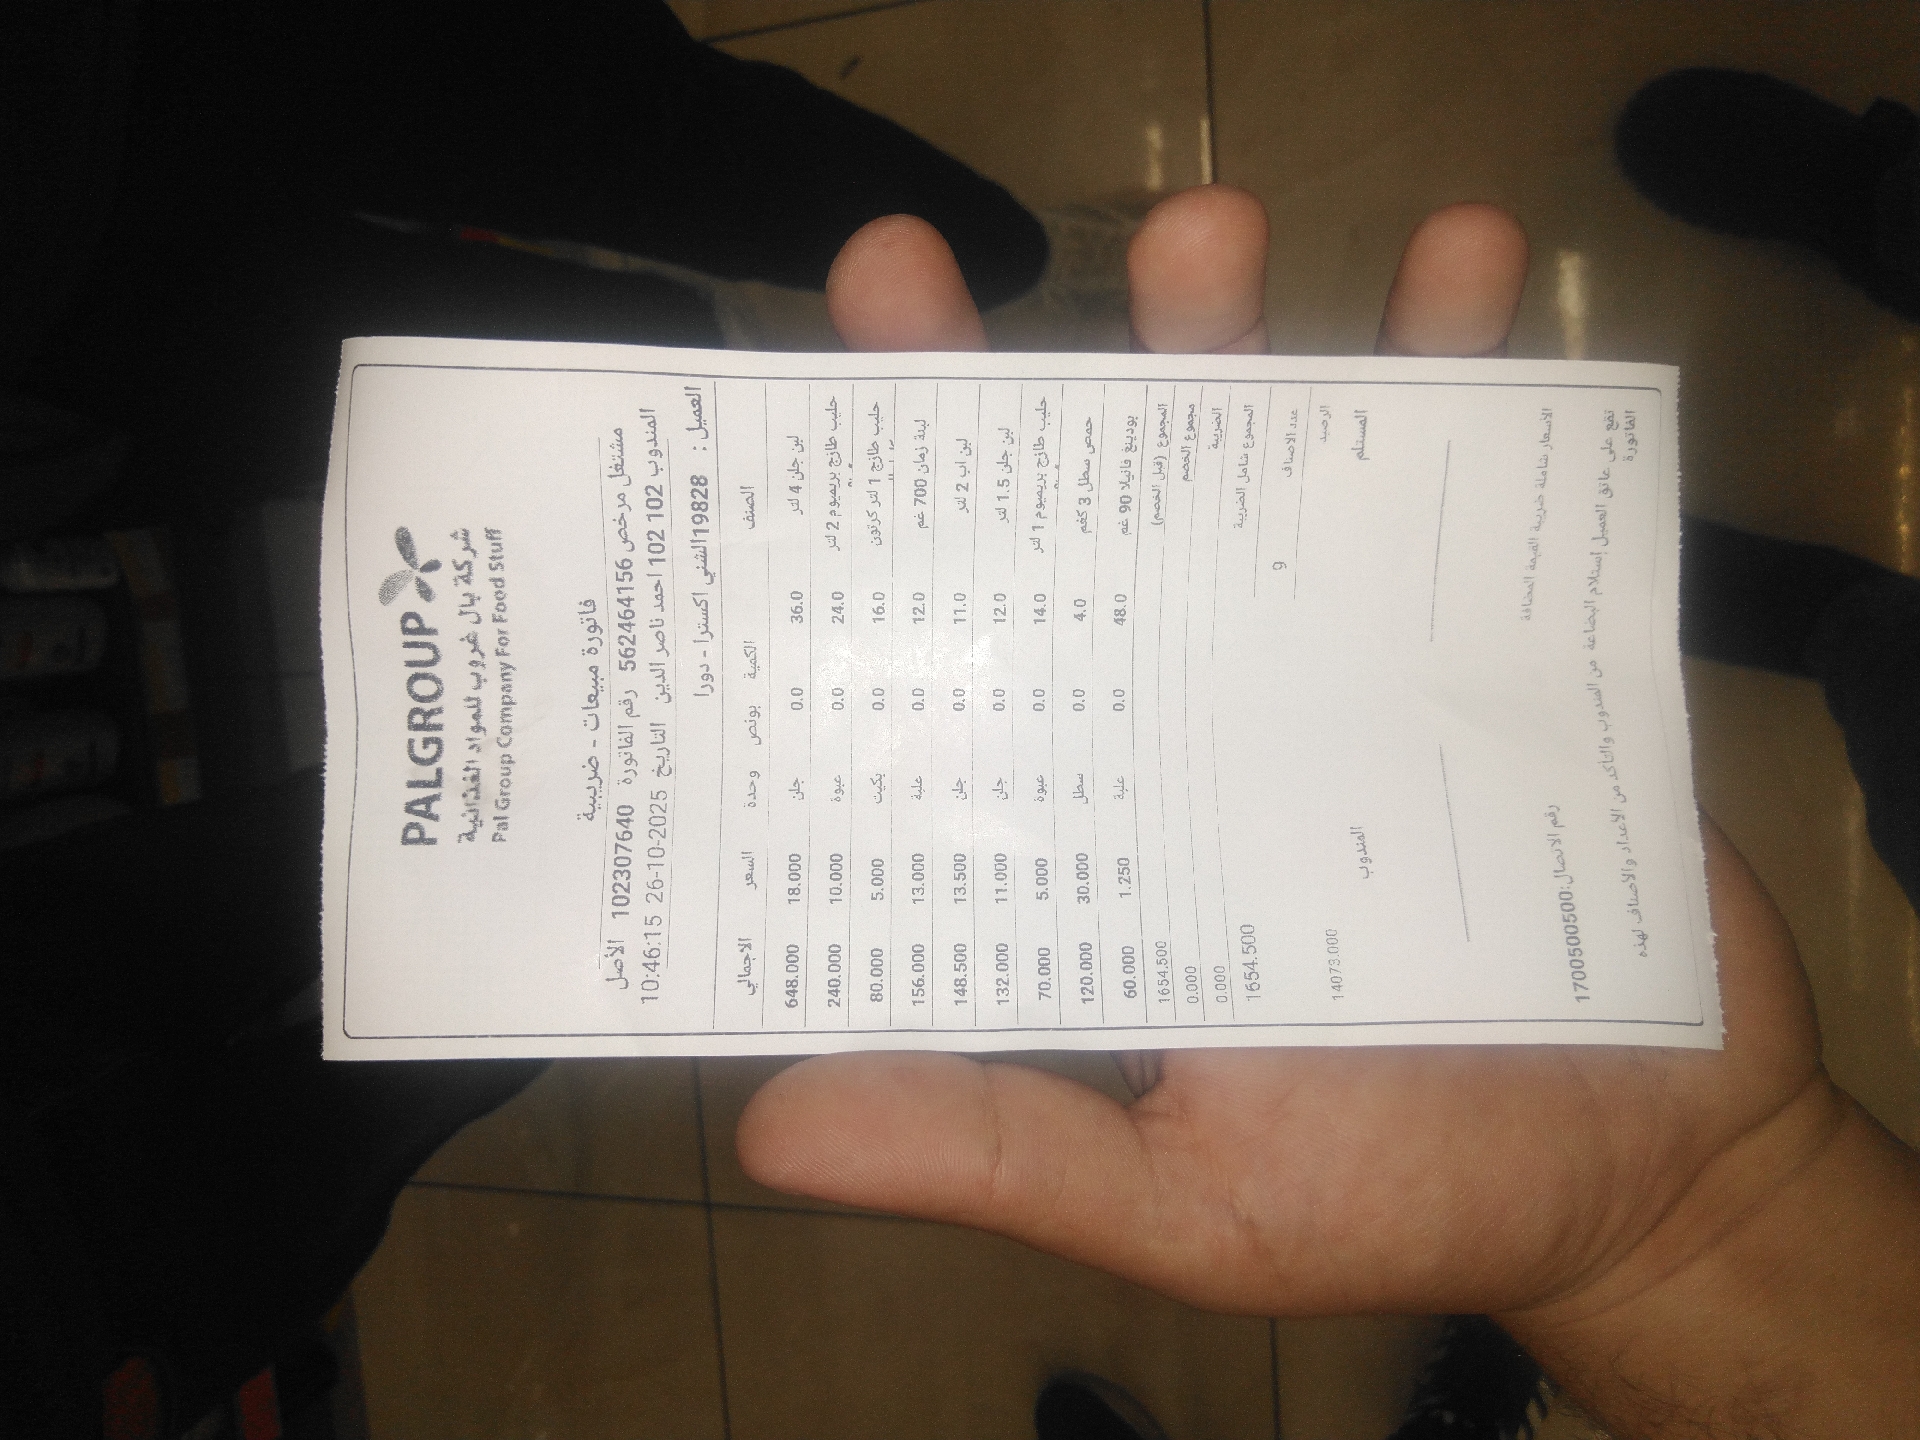 PALGROUP
شركة بال غروب للمواد الغذائية
Pal Group Company For Food Stuff
فاتورة مبيعات - ضريبية
مشتغل مرخص 562464156 رقم الفاتورة 102307640 الأصل
المندوب 102 102 احمد ناصر الدين التاريخ 2025-10-26 10:46:15
العميل : 19828 الشني اكسترا - دورا
الصنف الكمية بونص وحدة السعر الاجمالي
لبن جلن 4 لتر 36.0 0.0 جلن 18.000 648.000
حليب طازج بريميوم 2 لتر 24.0 0.0 عبوة 10.000 240.000
حليب طازج 1 لتر كرتون 16.0 0.0 بكيت 5.000 80.000
لبنة زمان 700 غم 12.0 0.0 علبة 13.000 156.000
لبن اب 2 لتر 11.0 0.0 جلن 13.500 148.500
لبن جلن 1.5 لتر 12.0 0.0 جلن 11.000 132.000
حليب طازج بريميوم 1 لتر 14.0 0.0 عبوة 5.000 70.000
حمص سطل 3 كغم 4.0 0.0 سطل 30.000 120.000
بودينغ فانيلا 90 غم 48.0 0.0 علبة 1.250 60.000
المجموع (قبل الخصم) 1654.500
مجموع الخصم 0.000
الضريبة 0.000
المجموع شامل الضريبة 1654.500
عدد الاصناف 9
الرصيد 14073.000
المستلم المندوب
الاسعار شاملة ضريبة القيمة المضافة رقم الاتصال:1700500500
تقع على عاتق العميل إستلام البضاعة من المندوب والتأكد من الأعداد و الأصناف لهذه
الفاتورة